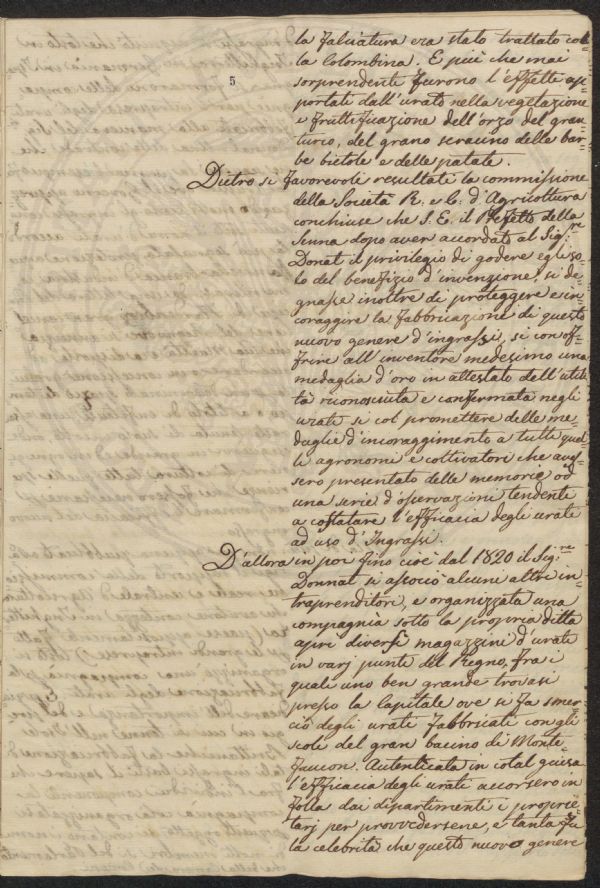 5
la falciatura era stato trattato con
la Colombina. E più che mai
sorprendenti furono l'effetti ap=
portati dall'urato nella vegetazione
e fruttificazione dell'orzo del gran
turco, del grano seracino delle bar
be bietole e delle patate.
Dietro si favorevoli resultati la commissione
della Società R. e C. d'Agricoltura
conchiuse che S. E. il Prefetto della
Senna dopo aver accordato al Sig:re
Donat il privilegio di godere egli so=
lo del benefizio d'invenzione, si de=
gnasse inoltre di proteggere e in=
coraggire la fabbricazione di questo
nuovo genere d'ingrassi, si con off=
frire all'inventore medesimo una
medaglia d'oro in attestato dell'utili=
tà riconosciuta e confermata negli
urati si col promettere delle me=
daglie d'incoraggimento a tutti quel=
li agronomi e coltivatori che aves=
sero presentato delle memorie od
una serie d'osservazioni tendenti
a costatare l'efficacia degli urati
ad uso d'Ingrassi.
D'allora in poi fino cioè dal 1820 il Sig:re
Donnat si associò alcuni altri in=
traprenditori, e organizzata una
compagnia sotto la propria ditta
aprì diversi magazzini d'urati
in varj punti del Regno, fra i
quali uno ben grande trovasi
presso la Capitale ove si fa smer=
cio degli urati fabbricati con gli
scoli del gran bacino di Monte=
faucon. Autenticata in cotal guisa
l'efficacia degli urati accorsero in
folla dai dipartimenti i proprie=
tarj per provvedersene, e tanta fu
la celebrità che questo nuovo genere